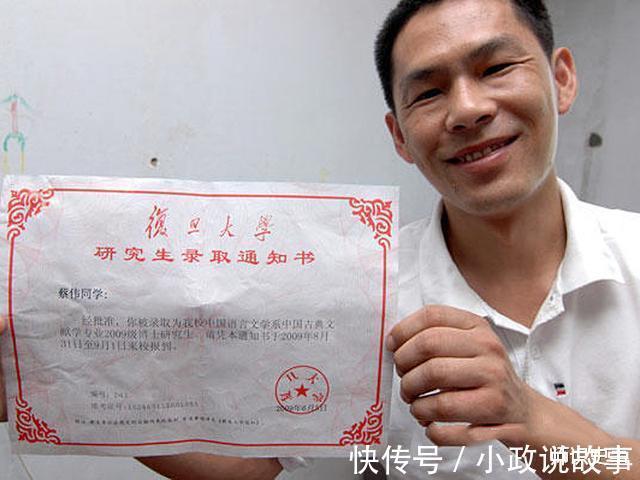 復旦大学
研究生录取通知书
蔡伟同学:
经批准,你被录取为我校中国语言文学系中国古典文
献学专业2009级博士研究生。请凭本通知书于2009年8月
31日至9月1日来校报到。
编号:
2009年6月5日
快传号 / 小政说故事